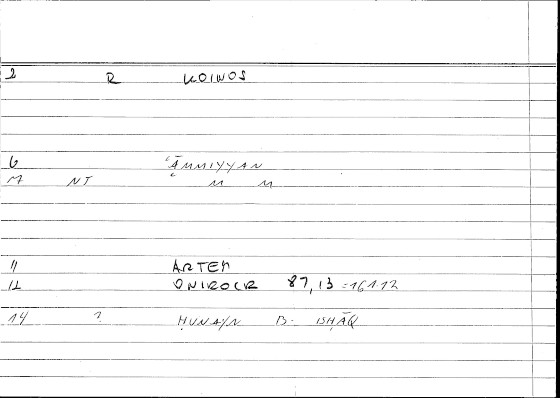 2 R KOINOS
6 ʿĀMMIYYAN
M NT " "
11 ARTEM
12 ONIROCR 87,13 =16112
14 ? ḤUNAYN B. ISḤĀQ